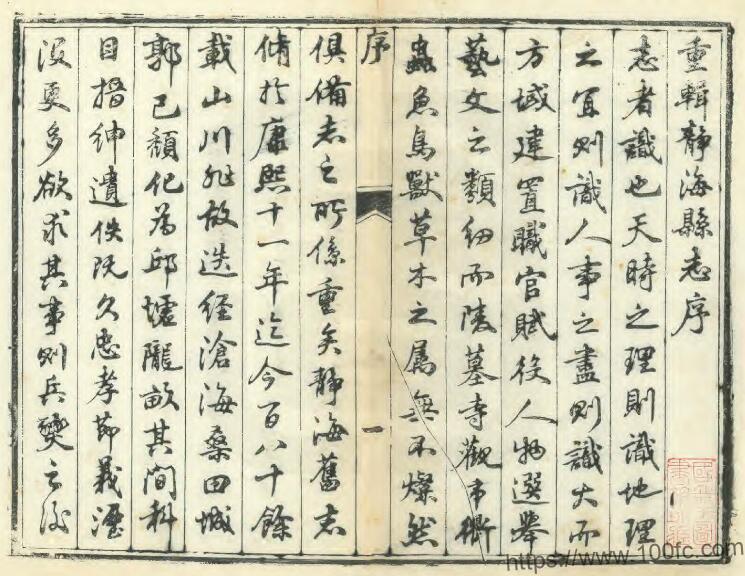 重輯靜海縣志序
志者識也天時之理則識地理
之宜則識人事之盡則識大而
方域建置職官賦役人物選舉
藝文之類細而陵墓寺觀市衢
蟲魚鳥獸草木之屬無不燦然
序
一
俱備志之所係重矣靜海舊志
脩於康熙十一年迄今百八十餘
載山川雖故迭經滄海桑田城
郭已頹化為邱墟隴畝其間科
目搢紳遺佚既久忠孝節義湮
沒更多欲求其事則兵燹之後
https://www.100fc.com